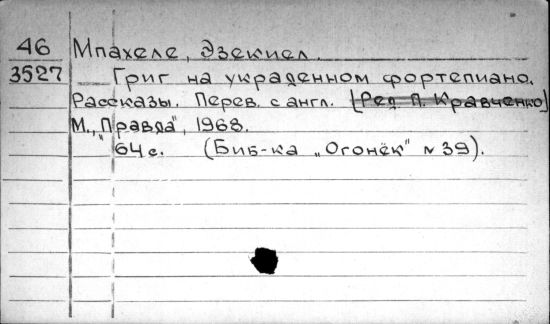 46 Мпахеле, Эзекиел.
3527 Григ на украденном фортепиано.
Рассказы. Перев. с англ. [Ред П. Кравченко]
М., "Правда", 1968.
64 с. (Биб-ка „Огонёк" N 39).